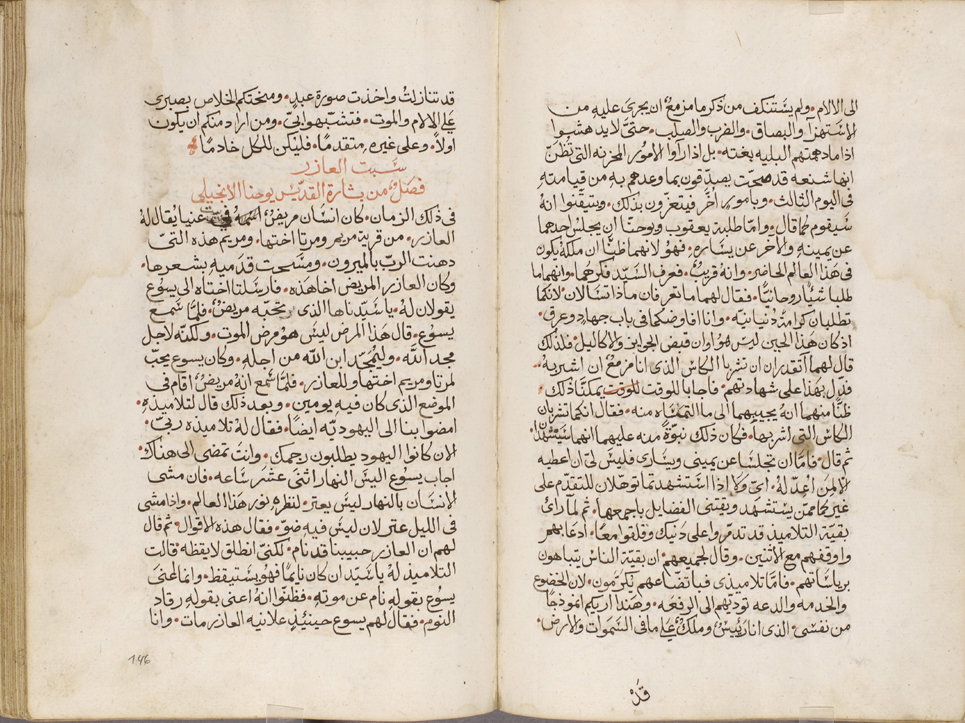 الى الالام. ولم يستنكف من ذكر ما مزمعٌ ان يجرى عليه من
الاستهزآ والبصاق. والضرب والصلب. حتىَّ لا يدهشوا
اذا ما دهمتهم البليه بغته. بل اذا رآوا الامور المحزنه التى تُظَنّ
انها شنعه قد صحّت يصدّقون بما وعدهم به من قيامته
فى اليوم الثالث. وبامور اُخَر فيتعزون بذلك. ويتيقّنوا انهُ
سَيقوم كما قال. وامّا طلبة يعقوب ويوحنّا ان يجلس احدهما
عن يمينه والاخر عن يساره. فهو لانهما ظنّا ان ملكهُ يكون
فى هذا العالم الحاضر. وانهُ قريبٌ. فعرف السّيّد فكرهما. وانهما ما
طلبا شيًا روحانيًّا. فقال لهما ما تعرفان ماذا تسالان لانكما
تطلبان كرامةً دنيانيّه. وانا افاوضكما فى باب جهادٍ وعرق.
اذ كان هذا الحين ليس هو اوان قبض الجوايز والاكاليل. فلذلك
قال لهما أتقدران ان تشربا الكاس الذى انا مزمعٌ ان اشربهُ.
فدّل بهذا على شهادتهم. فاجابا للوقت للوقت يمكننا ذلك.
ظنًّا منهما انهُ يجيبهما الى ما التمسَاه منه. فقال انكما تشربان
الكاس التى اشربها. فكان ذلك نبوّةً منه عليهما انهما سَيستشهدا.
ثم قال. فامّا ان تجلسا عن يمينى ويسَارى فليس لىّ ان اعطيه
الا لمن اُعدّ لهُ. اىّ ولا اذا استشهدتما توهلان للتقدّم على
غيركما ممّن يستشهد ويقتنى الفضايل باجمعها. ثم لمّا رأىَ
بقيّة التلاميذ قد تدمّروا على ذنيك وقلقوا معًا. ادعا بهمر
واوقفهم مع الاثنين. وقال لجميعهم ان بقيّة الناس يتباهون
برياسَاتهم. فامّا تلاميذى فباتضاعهم يُكرَّمون. لان الخضوع
والخدمه والدعه توديهم الى الرفعه. وهنذا اريكم انموذجًا
من نفسى. الذى انا رئيسٌ وملكٌ على ما فى السّموات والارض.
قدْ
قد تنازلتُ واخذت صورة عبدٍ. ومنحتكم الخلاص بصبرى
على الالام والموت. فتشبّهوا بىّ. ومن اراد منكم ان يكون
اولاً. وعلى غيره متقدمًا. فليكن للكل خادمًا
سَبت العازر
فصلٌ من بشارة القديس يوحنا الانجيلى
فى ذلك الزمان. كان انسَان مريضٌ اسمهُ من بيت عنيا يُقال لهُ
العازر. من قرية مريم ومرتا اختها. ومريم هذه التىّ
دهنت الربّ بالميرون. ومسَحت قدَميه بشعرها.
وكان العازر المريض اخا هذه. فارسَلتا اختاه الى يسوع
يقولان لهُ. يا سَيّد ها الذى تحبّه مريضٌ. فلمّا سَمِع
يسوع. قال هَذا المرض ليسَ هو مرض الموت. ولكنّه لاجل
مجد الله. وليُمجَّد ابن الله من اجله. وكان يسوع يحبّ
لمرتا ومريم اختها وللعازر. فلمّا سَمع انهُ مريضٌ اقام فى
الموضع الذى كان فيه يومين. وبعد ذلك قال لتلاميذه.
امضوا بنا الى اليهوديّه ايضًا. فقال لهُ تلاميذه ربىّ.
الان كانوا اليهود يطلبون رجمك. وانتَ تمضى الى هناك.
اجاب يسوع اليسَ النهار اثنىّ عشر سَاعه. فان مشى
الانسَان بالنهار ليسَ يعثر. لنظره نور هذا العالم. واذا مشى
فى الليل عثر لان ليسَ فيه ضوٌ. فقال هذه الاقوال. ثم قال
لهم ان العازر حبيبنا قد نام. لكنىّ انطلق لايقظه. قالت
التلاميذ لهُ يا سَيّد ان كان نايمًا فهو يستيقظ. وانما عَنَى
يسوع بقوله نام عن موته. فظنّوا انهُ اعنى بقوله رقاد
النوم. فقال لهم يسوع حينئذٍ علانيه العازر مات. وانا
146